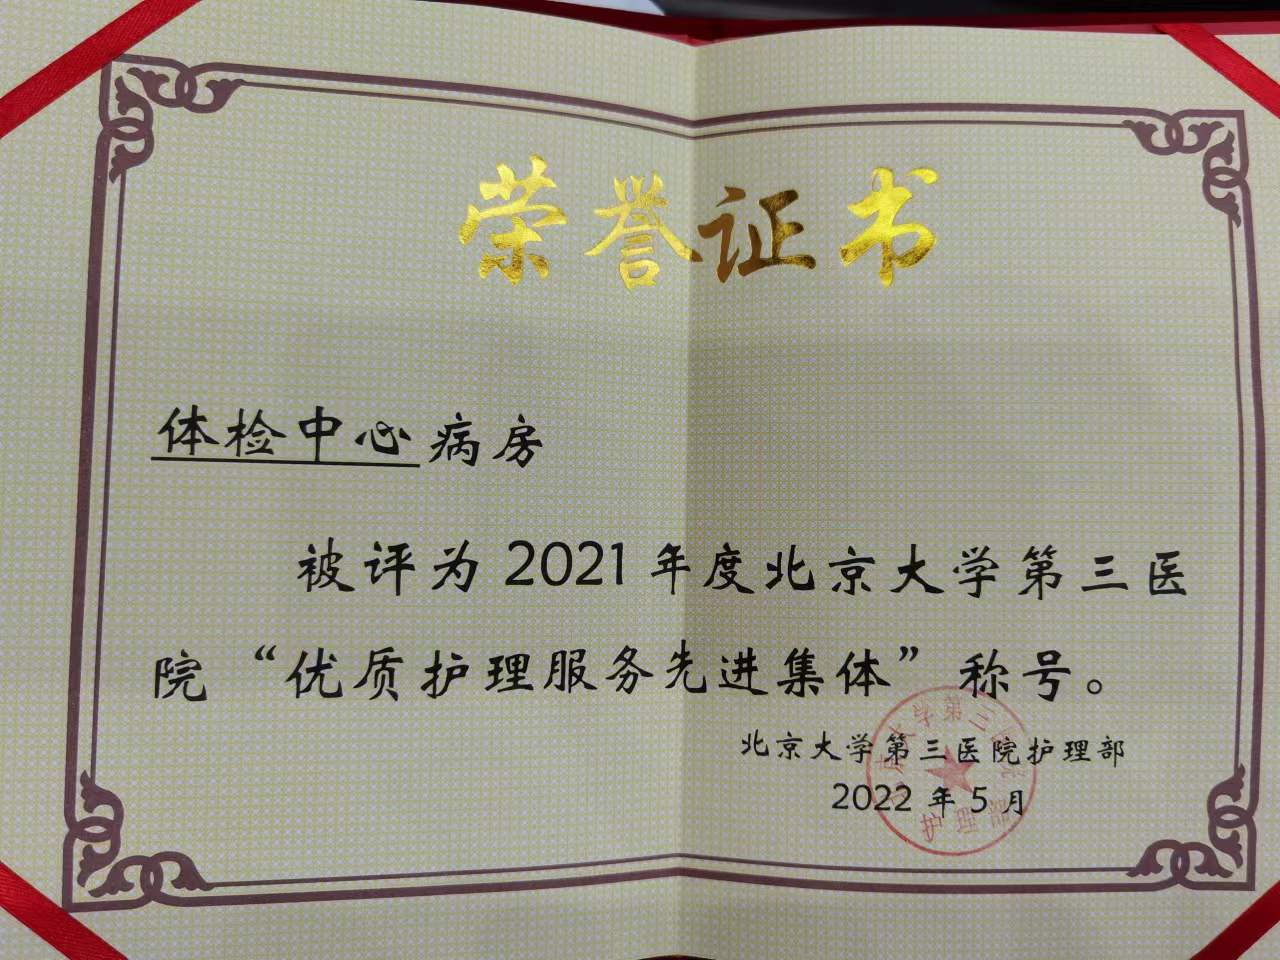 荣誉证书
体检中心病房
被评为2021年度北京大学第三医
院“优质护理服务先进集体”称号。
北京大学第三医院护理部
2022年5月
北京大学第三医院
护理部